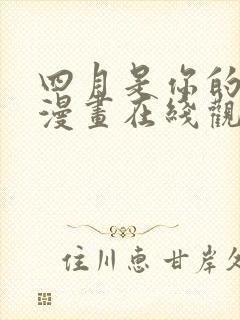 四月是你的
漫畫在綫觀
住川惠 甘岸久